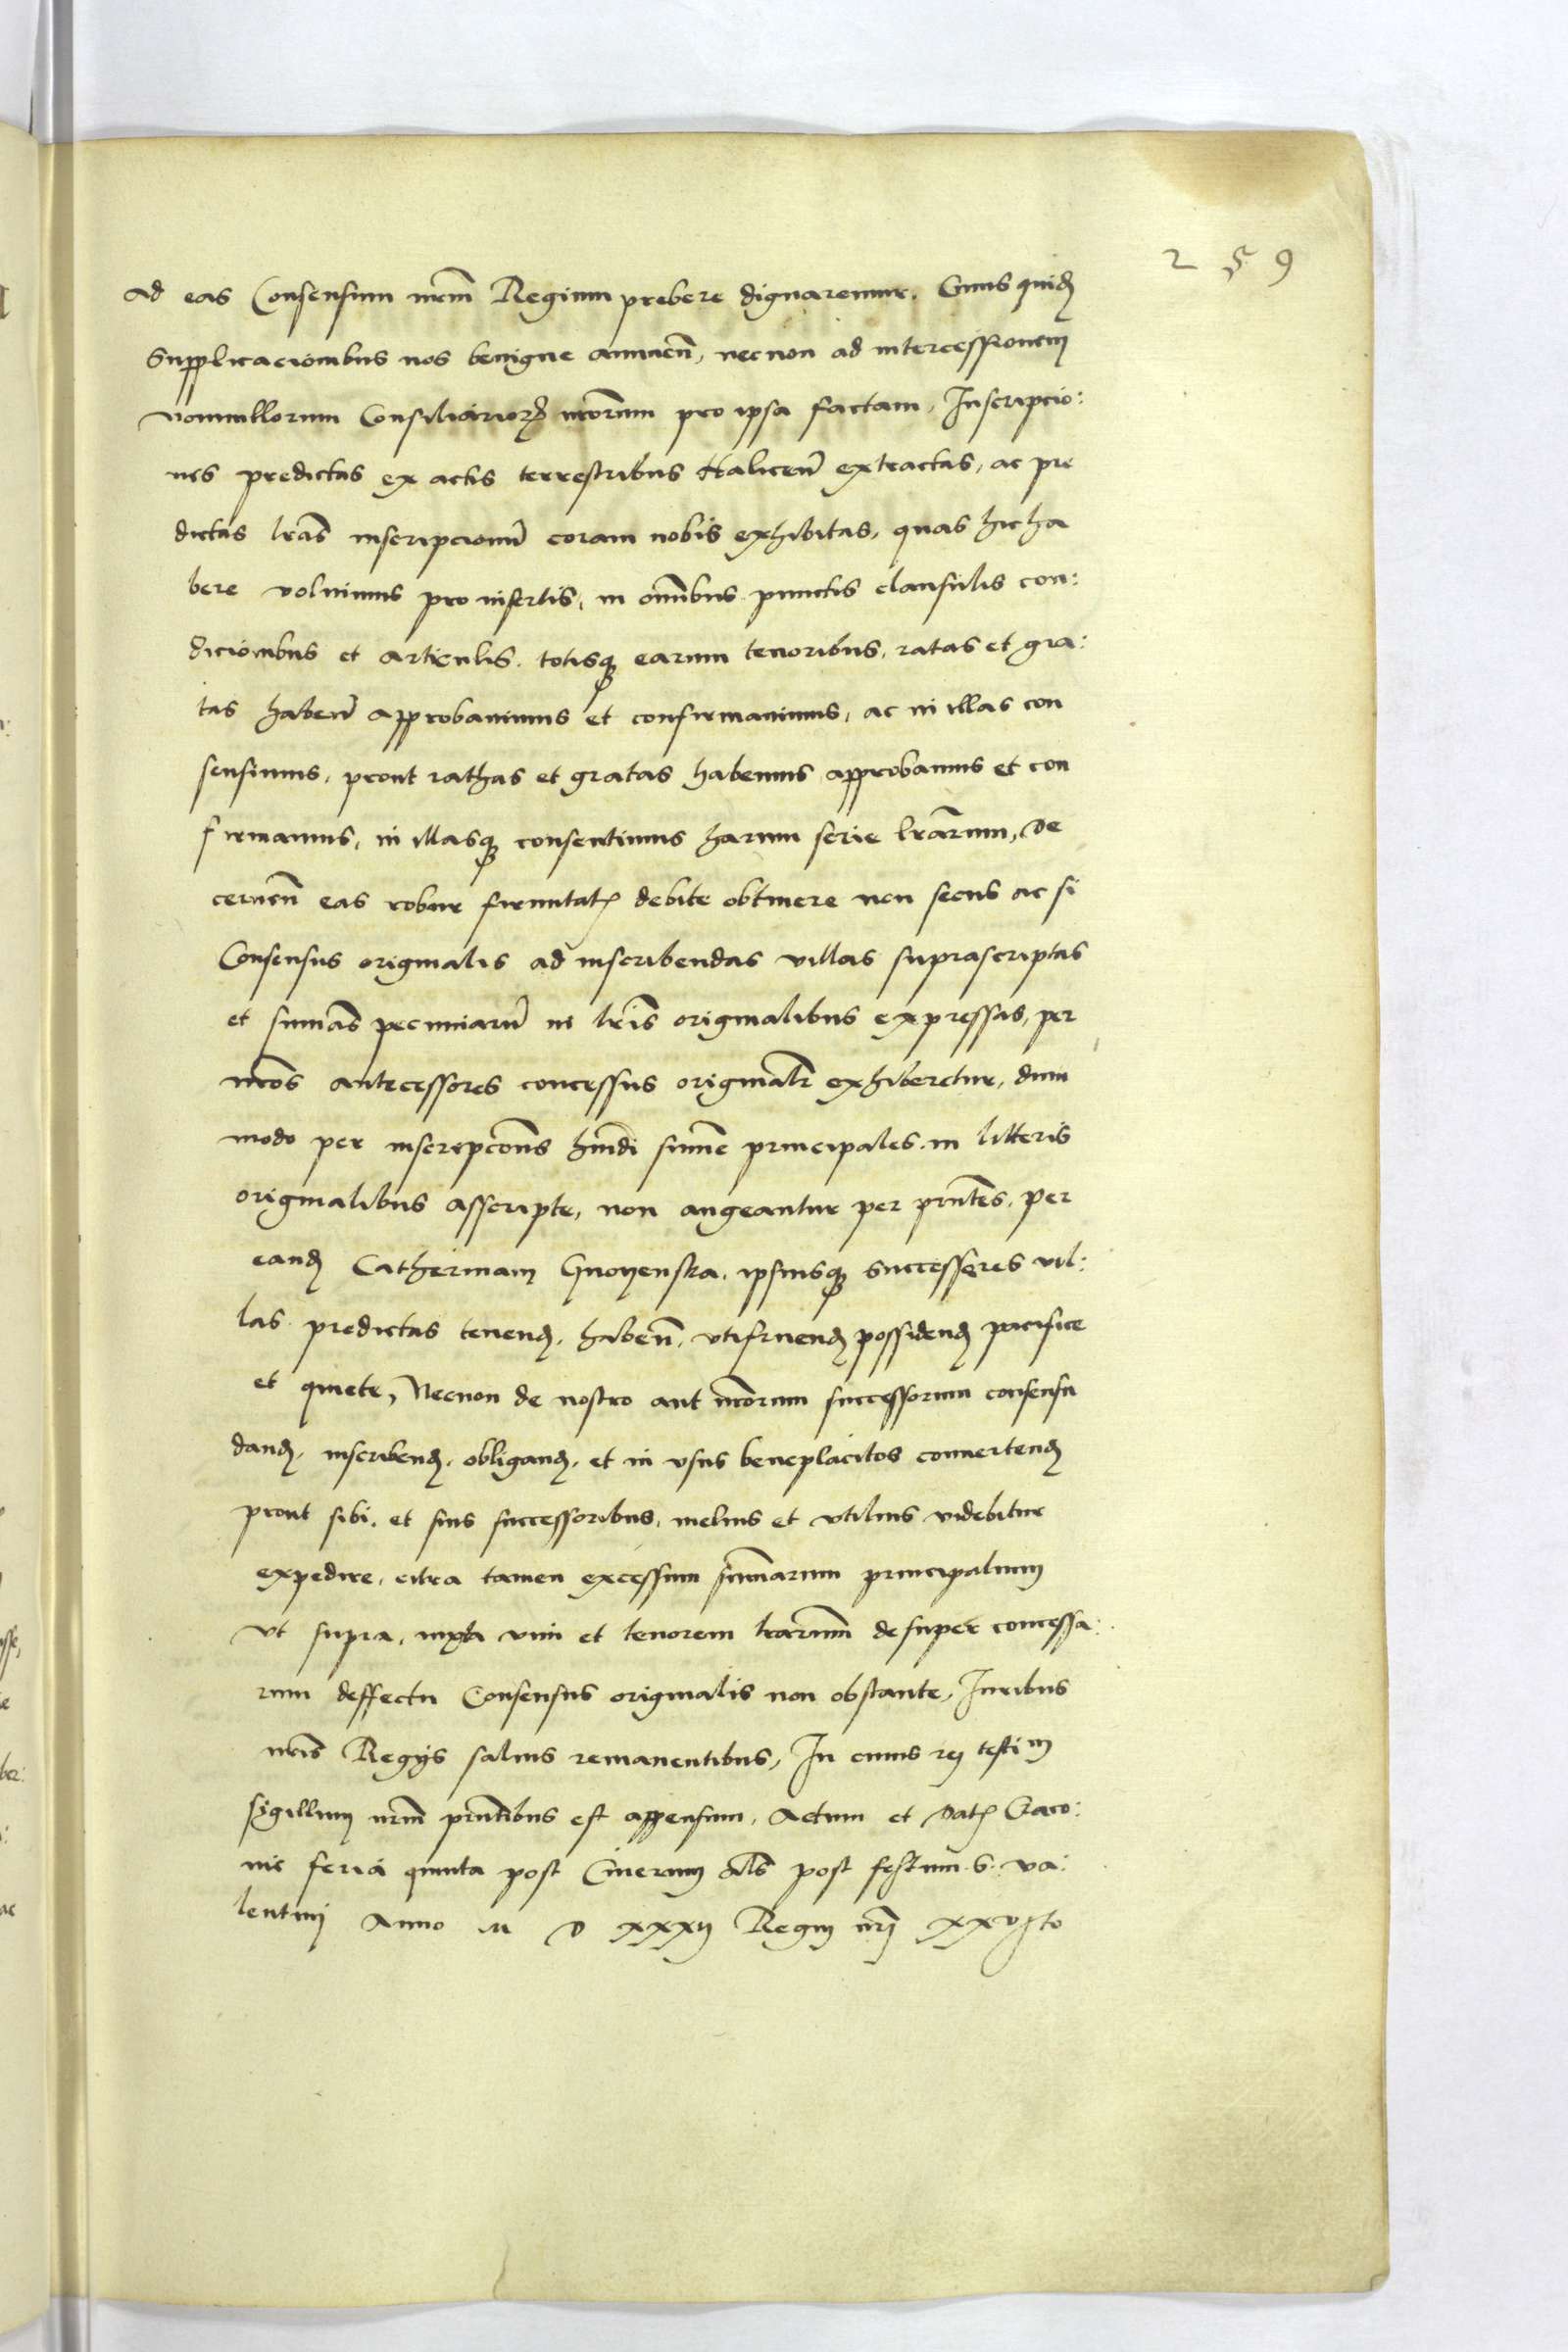 259
ad eas Consensum nrm̄ Regium prebere dignaremur. Cuius quid̄
Supplicacionibus nos benigne annuen̄, necnon ad intercessionem
nonnullorum Consiliarior̄ nr̄orum pro ipsa factam, Inscripcio:
nes predictas ex actis terrestribus Halicen̄ extractas, ac pre
dictas lr̄as inscripcionū coram nobis exhibitas, quas hic ha
bere voluimus pro insertis, in omībus punctis clausulis con:
dicionibus et articulis. totisq earum tenoribus, ratas et gra:
tas haben̄ approbauimus et confirmauimus, ac in illas con
sensimus, prout rathas et gratas habemus approbamus et con
firmamus, in illasq consentimus harum serie lr̄arum, de
cernen̄ eas robur firmitat̄ debite obtinere non secus ac si
Consensus originalis ad inscribendas villas suprascriptas
et sum̄as pecuniarū in lr̄is originalibus expressas, per
nr̄os antecessores concessus originalr̄ exhiberetur, dum
modo per inscripcōns hmōi sum̄e principales in litteris
originalibus asscripte, non augeantur per pn̄tes, per
eand̄ Catherinam Gnoyenska, ipsiusq successores vil:
las predictas tenend̄, haben̄, vtifruend̄ possidend̄ pacifice
et quiete, Necnon de nostro aut nr̄orum successorum consensu
dand̄, inscribend̄, obligand̄, et in vsus beneplacitos conuertend̄
prout sibi, et suis successoribus, melius et vtilius videbitur
expedire, citra tamen excessum sum̄arum principalium
vt supra, iuxta vim et tenorem lr̄arum desuper concessa:
rum deffectu Consensus originalis non obstante, Iuribus
nr̄is Regys saluis remanentibus, In cuius rej testim
sigillum nrm̄ pn̄tibus est appensum, Actum et Dat̄ Craco:
uie feria quinta post Cinerum als̄ post festum S. Va:
lentinj Anno M D XXXIj Regnj nr̄j XXVjto